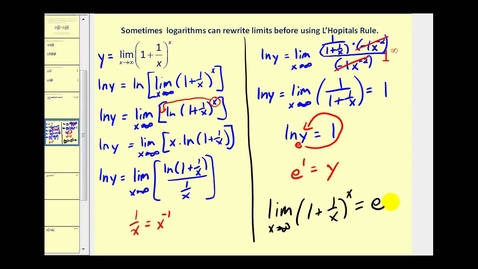 Sometimes logarithms can rewrite limits before using L'Hopitals Rule.
y = lim x→∞ (1 + 1/x)^x
lny = ln [lim x→∞ (1 + 1/x)^x]
lny = lim x→∞ [ln (1 + 1/x)^x]
lny = lim x→∞ [x · ln (1 + 1/x)]
lny = lim x→∞ [ln(1 + 1/x) / 1/x]
1/x = x^-1
lny = lim x→∞ 1/(1 + 1/x) · (-1x^-2) / (-1x^-2)
lny = lim x→∞ (1/(1 + 1/x)) = 1
lny = 1
e
e^1 = y
lim x→∞ (1 + 1/x)^x = e